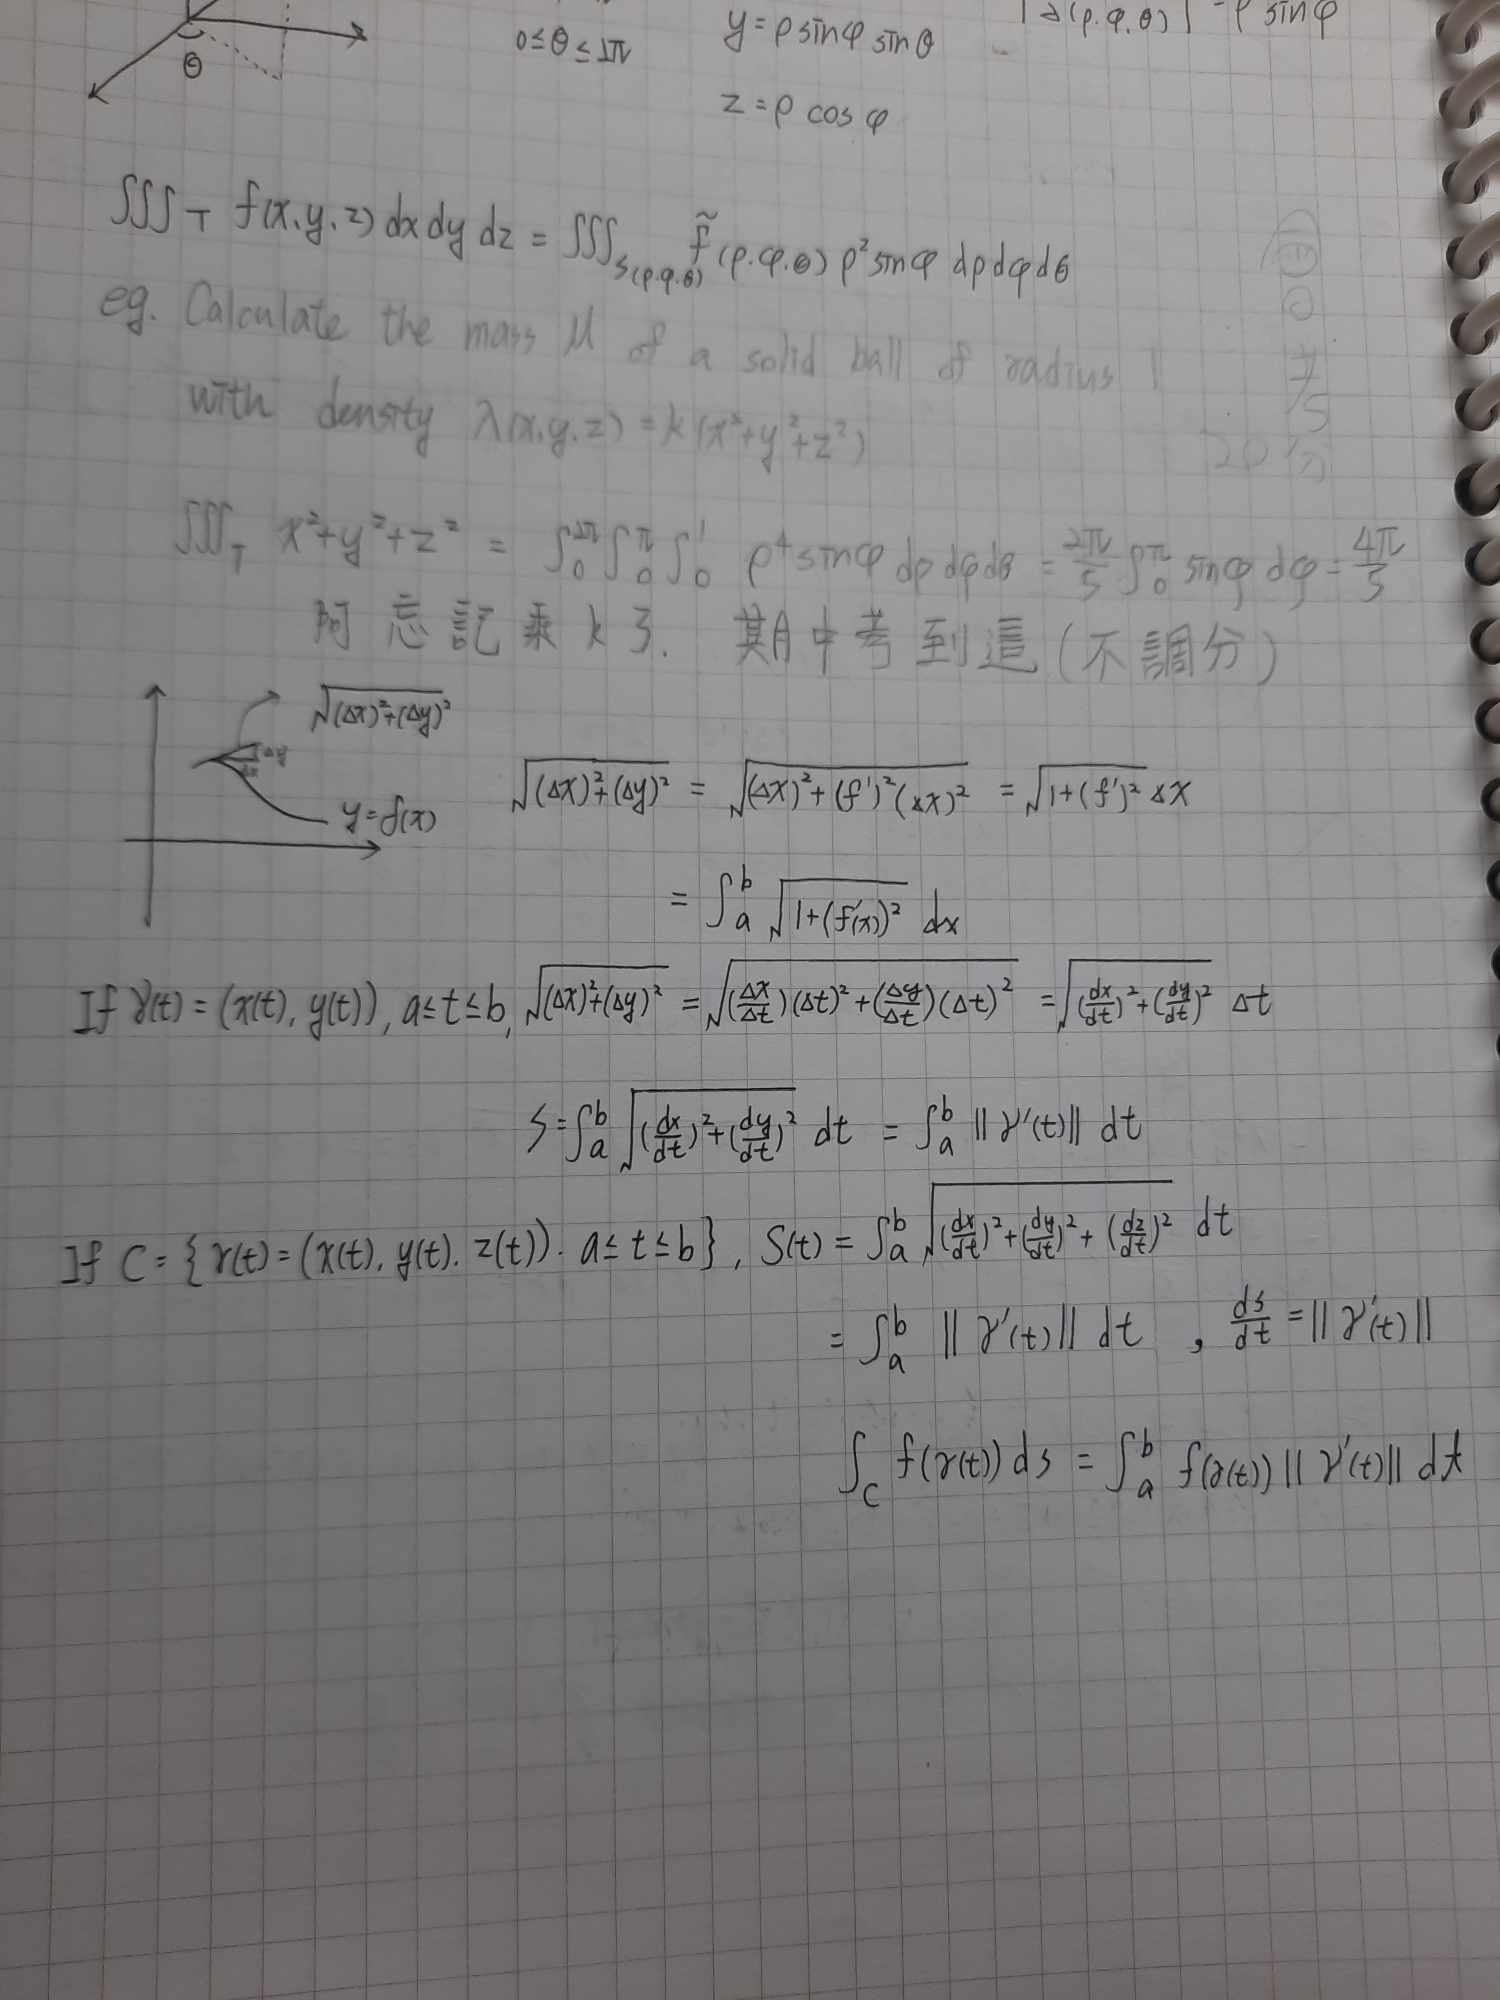 y = ρ sinφ sinθ
0 ≤ θ ≤ 2π
θ
z = ρ cos φ
∫∫∫_T f(x, y, z) dx dy dz = ∫∫∫_{S(ρ.φ.θ)} f̃(ρ.φ.θ) ρ² sinφ dρ dφ dθ
eg. Calculate the mass M of a solid ball of radius 1
with density λ(x.y.z) = k(x²+y²+z²)
∫∫∫_T x²+y²+z² = ∫₀^{2π} ∫₀^π ∫₀^1 ρ⁴ sinφ dρ dφ dθ = 2π/5 ∫₀^π sinφ dφ = 4π/5
阿 忘記乘 k 了. 期中考到這 (不調分)
√((Δx)²+(Δy)²)
Δy
Δx
y = f(x)
√((Δx)²+(Δy)²) = √((Δx)²+(f')²(Δx)²) = √(1+(f')²) Δx
= ∫_a^b √(1+(f'(x))²) dx
If γ(t) = (x(t), y(t)), a ≤ t ≤ b, √((Δx)²+(Δy)²) = √((Δx/Δt)(Δt)²+(Δy/Δt)(Δt)²) = √((dx/dt)²+(dy/dt)²) Δt
S = ∫_a^b √((dx/dt)²+(dy/dt)²) dt = ∫_a^b ||γ'(t)|| dt
If C = {γ(t) = (x(t), y(t), z(t)). a ≤ t ≤ b}, S(t) = ∫_a^b √((dx/dt)²+(dy/dt)²+(dz/dt)²) dt
= ∫_a^b ||γ'(t)|| dt , ds/dt = ||γ'(t)||
∫_C f(γ(t)) ds = ∫_a^b f(γ(t)) ||γ'(t)|| dt